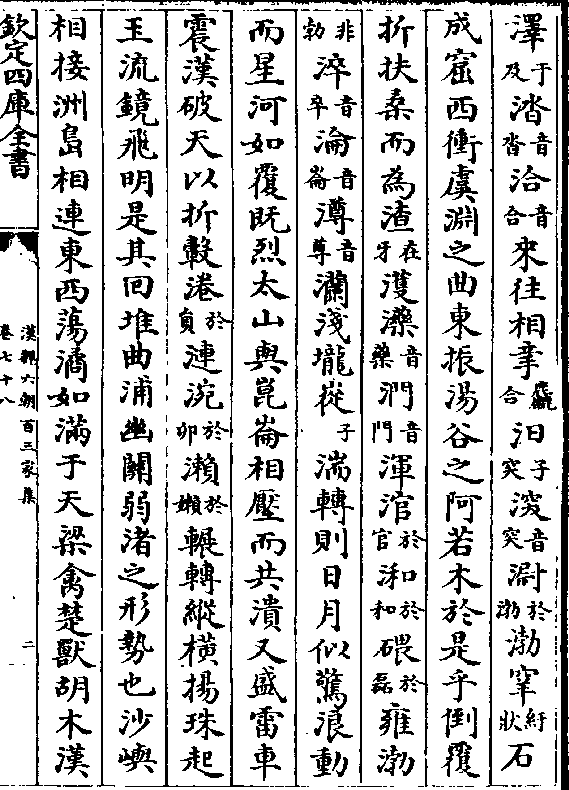 澤于及涾音沓洽音合來往相㪉合汨子突㴾音突㵟於渤渤窣紆狀石
成窟西衝虞淵之曲東振湯谷之阿若木於是乎倒覆
折扶桑而為渣在牙濩濼音藥㵍音門渾涫於官㳚於和碨於磊雍渤
非勃淬音卒淪音崙㵢音尊瀾淺壠嵸子湍轉則日月似驚浪動
而星河如覆既烈太山與崑崙相壓而共潰又盛雷車
震漢破天以折轂港於負漣涴於卯瀨於嬾輾轉縱橫揚珠起
玉流鏡飛明是其回堆曲浦幽關弱渚之形勢也沙嶼
相接洲島相連東西蕩潏如滿于天梁禽楚獸胡木漢
欽定四庫全書
漢魏六朝百三家集
卷七十八
二